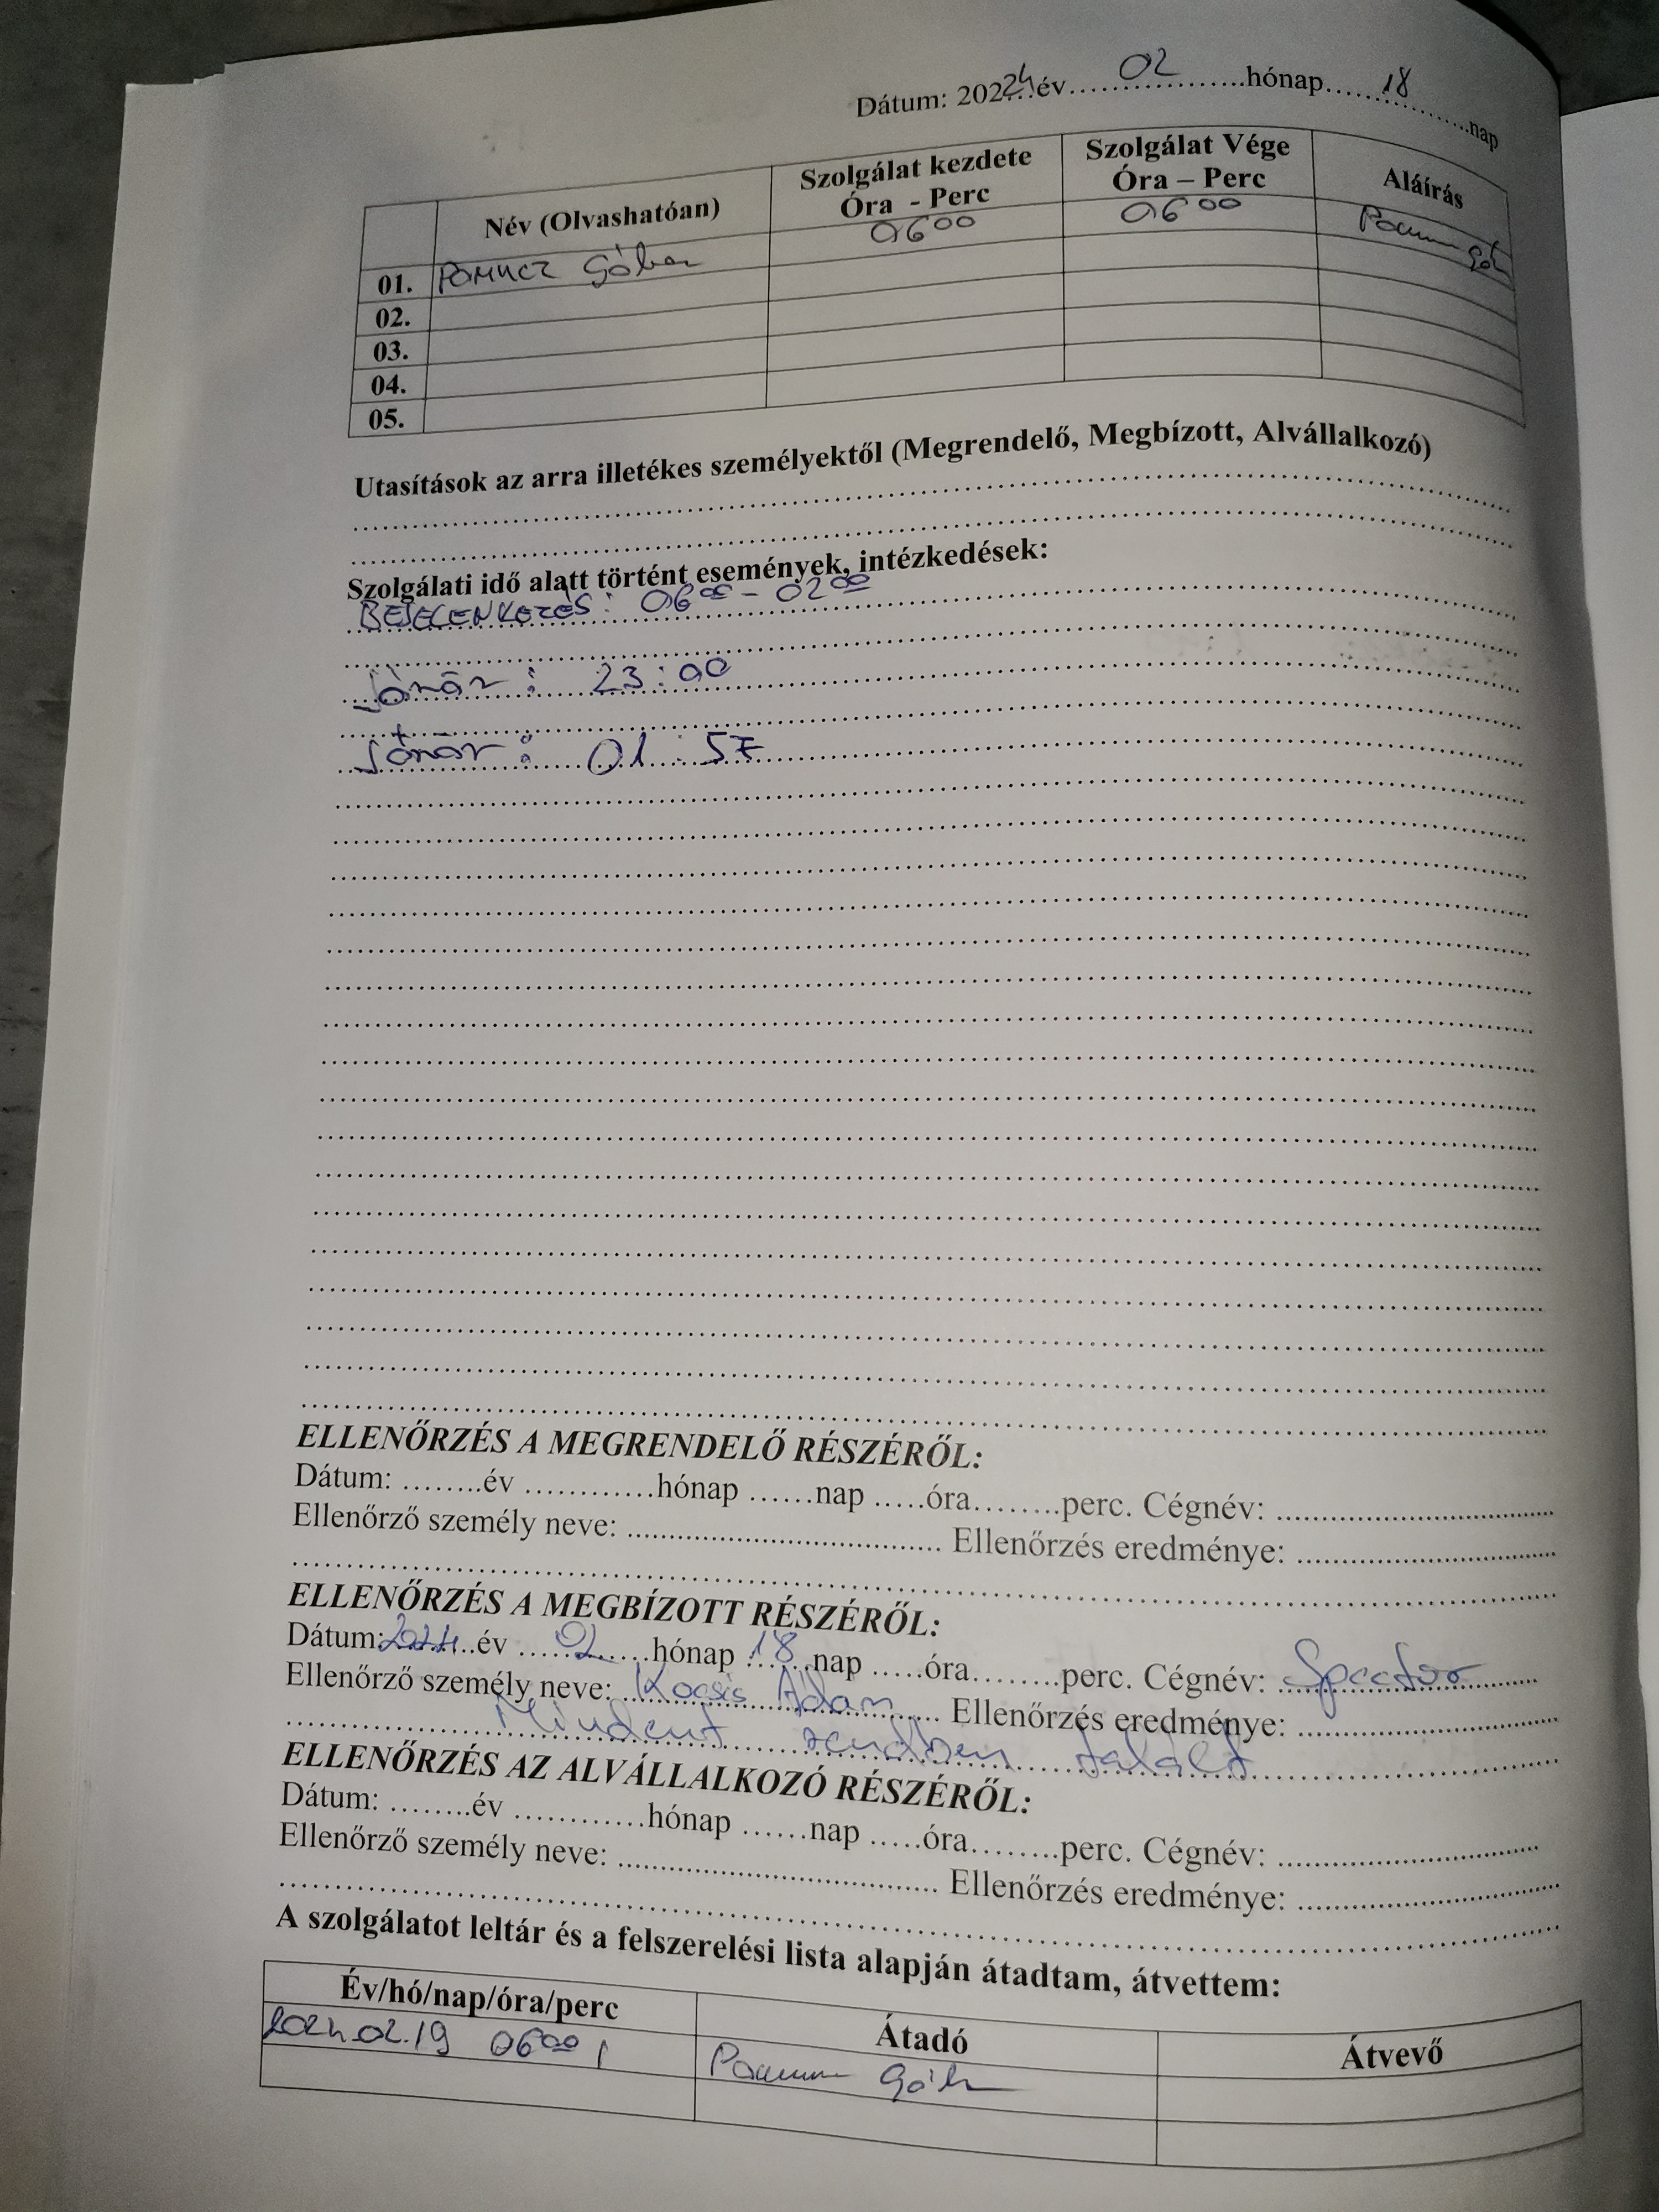 Dátum: 20224 év 02 hónap 18 nap
Név (Olvashatóan) Szolgálat kezdete Óra - Perc Szolgálat Vége Óra – Perc Aláírás
01. POMUCZ Gábor 06 00 06 00
02.
03.
04.
05.
Utasítások az arra illetékes személyektől (Megrendelő, Megbízott, Alvállalkozó)
Szolgálati idő alatt történt események, intézkedések:
BEJELENKEZÉS: 06 00 - 02 00
Járőr: 23:00
Járőr: 01:57
ELLENŐRZÉS A MEGRENDELŐ RÉSZÉRŐL:
Dátum: ........év ............hónap ......nap .....óra........perc. Cégnév: ..............................
Ellenőrző személy neve: .............................. Ellenőrzés eredménye: ..............................
ELLENŐRZÉS A MEGBÍZOTT RÉSZÉRŐL:
Dátum: 2024 év 02 hónap 18 nap .....óra........perc. Cégnév:
Ellenőrző személy neve: Kocsis Ádám Ellenőrzés eredménye: ..............................
Mindent rendben talált
ELLENŐRZÉS AZ ALVÁLLALKOZÓ RÉSZÉRŐL:
Dátum: ........év ............hónap ......nap .....óra........perc. Cégnév: ..............................
Ellenőrző személy neve: .............................. Ellenőrzés eredménye: ..............................
A szolgálatot leltár és a felszerelési lista alapján átadtam, átvettem:
Év/hó/nap/óra/perc Átadó Átvevő
2024.02.19 06 00